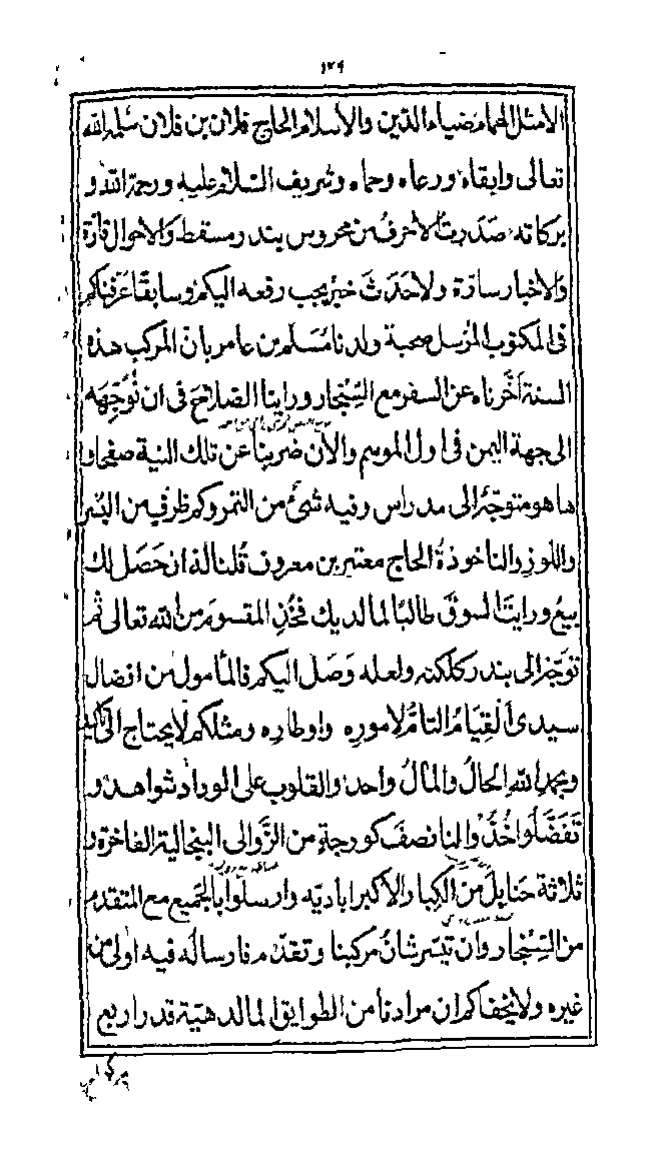 ١٢٩
الامثل الهمام ضياء الدين والاسلام الحاج فلان بن فلان سلمه الله
تعالى وابقاه ورعاه وحماه وشريف السلام عليه ورحمة الله و
بركاته صَدَرَتِ الاحرفُ من محروس بندر مسقط والاحوال قارّة
والاخبار سارّة ولاحَدَثَ خبرٌ يجب رفعه اليكم وسابقًا عَرّفناكم
فى المكتوب المُرسل صحبة ولدنا مُسَلّم بن عامر بان المركب هذه
السنة اَخّرناه عن السفر مع السِّنجار وراينا الصَّلاحَ فى ان نُوَجِّهَه
الى جهة اليمن فى اول الموسم والآن ضربنا عن تلك النية صفحا و
ها هو متوجّهٌ الى مدراس وفيه شىٌ من التمر وكم ظرفٍ من البُسْر
واللوز والناخوذةُ الحاج معتبر بن معروف قُلنا له ان حَصَل لك
بيعٌ ورايتَ السوقَ طالبًا لما لديك فخُذِ المقسومَ من الله تعالى ثم
توجّه الى بندر كلكته ولعله وَصَل اليكم فالمأمول من افضال
سيدى القِيَامُ التامُّ لاموره واوطاره ومثلكم لايحتاج الى تاكيد
وبحمدِ اللهِ الحالُ والمالُ واحد والقلوب على الوداد شواهد و
تَفَضّلُوا خُذُوا لنا نصفَ كورجةٍ من الزَّوالى البنجالية الفاخرة و
ثلاثة حَنابِلَ من الكِبار الاكبراباديّه وارسلوا بالجميع مع المتقدم
من السِّنجار وان تيسّر شانُ مركبنا وتقدّم فارسالُه فيه اولى من
غيره ولايخفاكم ان مرادنا من الطوايق المالدهيّة قدر اربع